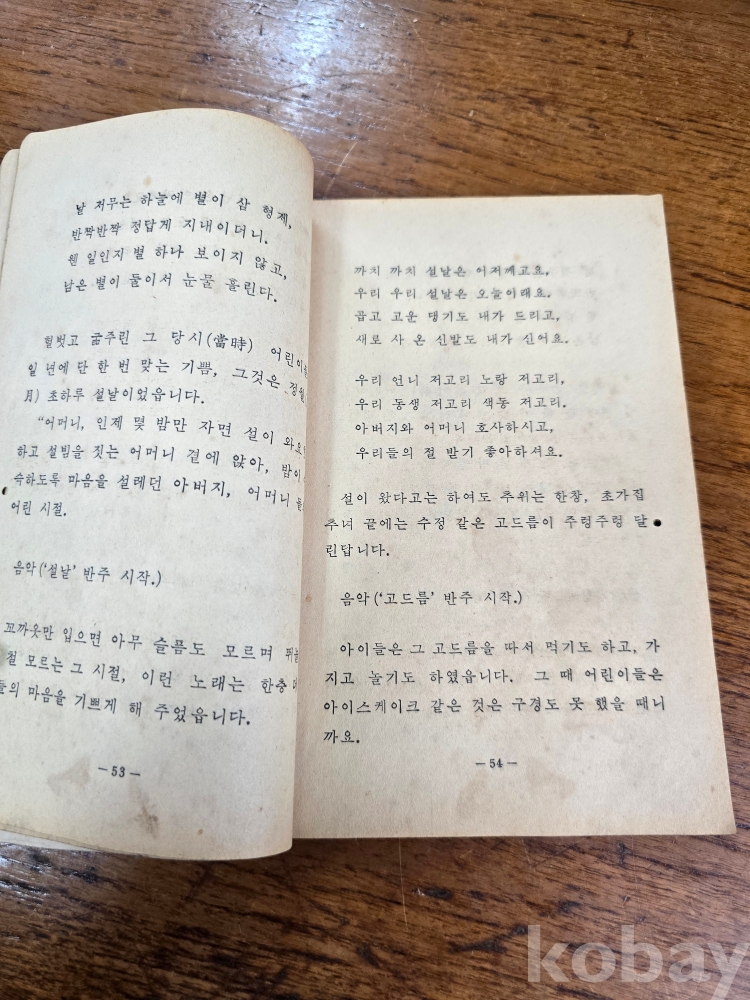 날 저무는 하늘에 별이 삼 형제,
반짝반짝 정답게 지내이더니.
웬 일인지 별 하나 보이지 않고,
남은 별이 둘이서 눈물 흘린다.
헐벗고 굶주린 그 당시(當時) 어린이
일 년에 단 한 번 맞는 기쁨, 그것은 정월
月) 초하루 설날이었읍니다.
“어머니, 인제 몇 밤만 자면 설이 와요
하고 설빔을 짓는 어머니 곁에 앉아, 밤이
슥하도록 마음을 설레던 아버지, 어머니
어린 시절.
음악(‘설날’ 반주 시작.)
꼬까옷만 입으면 아무 슬픔도 모르며
철 모르는 그 시절, 이런 노래는 한층
들의 마음을 기쁘게 해 주었읍니다.
— 53 —
까치 까치 설날은 어저께고요,
우리 우리 설날은 오늘이래요.
곱고 고운 댕기도 내가 드리고,
새로 사 온 신발도 내가 신어요.
우리 언니 저고리 노랑 저고리,
우리 동생 저고리 색동 저고리.
아버지와 어머니 호사하시고,
우리들의 절 받기 좋아하셔요.
설이 왔다고는 하여도 추위는 한창, 초가집
추녀 끝에는 수정 같은 고드름이 주렁주렁 달
린답니다.
음악(‘고드름’ 반주 시작.)
아이들은 그 고드름을 따서 먹기도 하고, 가
지고 놀기도 하였읍니다. 그 때 어린이들은
아이스케이크 같은 것은 구경도 못 했을 때니
까요.
— 54 —
kobay